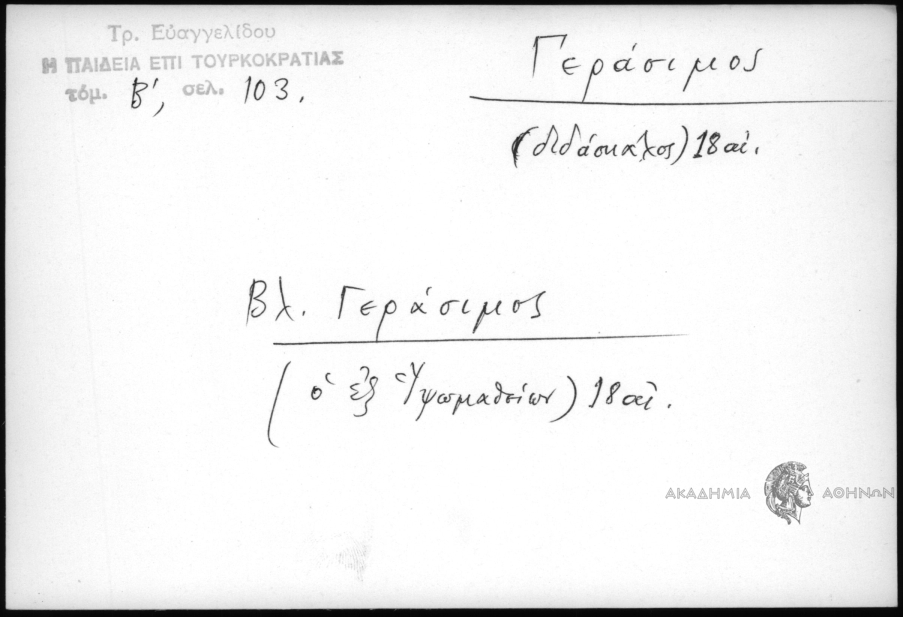 Τρ. Εὐαγγελίδου
Η ΠΑΙΔΕΙΑ ΕΠΙ ΤΟΥΡΚΟΚΡΑΤΙΑΣ
τόμ. Β', σελ. 103.
Γεράσιμος
(διδάσκαλος) 18 αἰ.
Βλ. Γεράσιμος
(ὁ ἐξ Ὑψωμαθείων) 18 αἰ.
ΑΚΑΔΗΜΙΑ ΑΘΗΝΩΝ